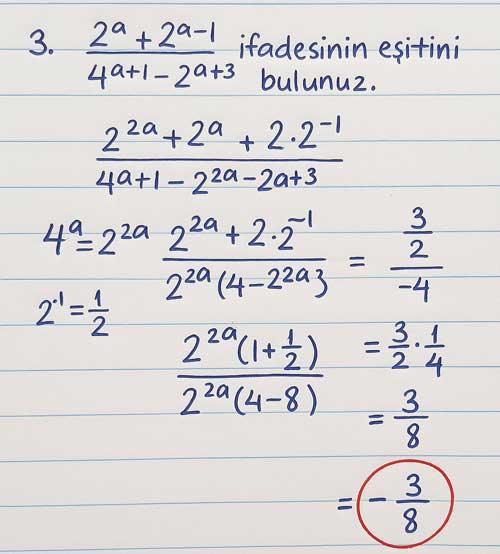 3. (2^a + 2^(a-1)) / (4^(a+1) - 2^(a+3)) ifadesinin eşitini
bulunuz.
(2^(2a) + 2^a + 2·2^(-1)) / (4^(a+1) - 2^(2a-2a+3))
4^a = 2^(2a)
2^(-1) = 1/2
(2^(2a) + 2·2^(-1)) / (2^(2a)(4-2^(2a)}) = (3/2) / (-4)
(2^(2a)(1+1/2)) / (2^(2a)(4-8)) = 3/2 · 1/4
= 3/8
= - 3/8